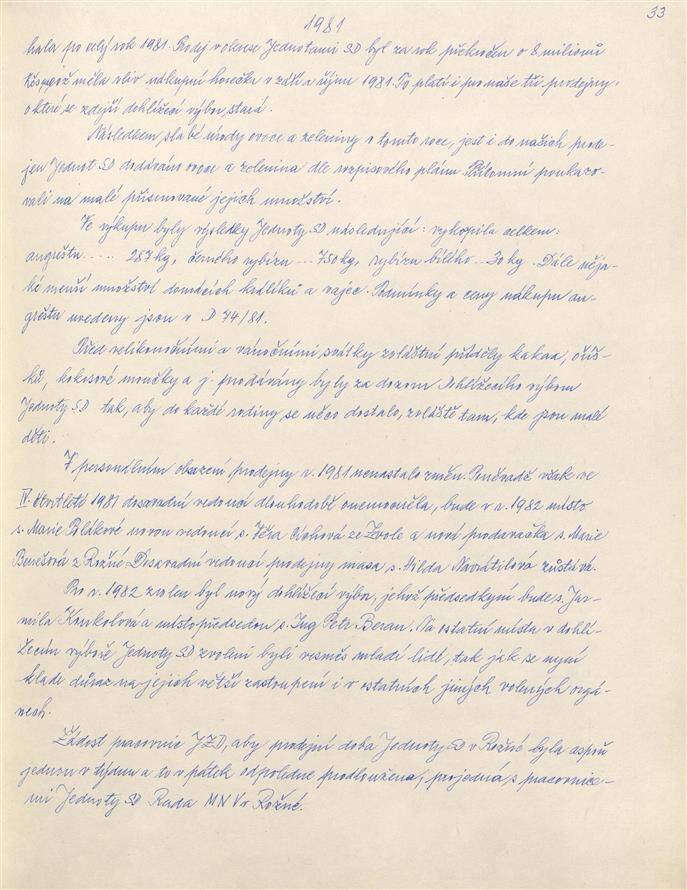 1981
33
hala po celý rok 1981. Prodej v okrese Jednotami SD byl za rok překročen o 8 milionů
Kčs, což měla vliv nákupní horečka v září a říjnu 1981. To platí i pro naše tři prodejny,
o které se zdejší dohlížecí výbor stará.
Následkem slabé úrody ovoce a zeleniny v tomto roce, jest i do našich prode-
jen Jednot SD dodáváno ovoce a zelenina dle rozpisového plánu. Přítomní poukazo-
vali na malé přisunované jejich množství.
Ve výkupu byly výsledky Jednoty SD následující: vykoupila celkem:
angreštu ..... 287 kg, černého rybízu ... 750 kg, rybízu bílého ... 30 kg. Dále něja-
ké menší množství domácích králíků a vajec. Podmínky a ceny nákupu an-
greštu uvedeny jsou v D 74/81.
Před velikonočními a vánočními svátky zvláštní příděly kakaa, oříš-
ků, kokosové moučky a j. prodávány byly za dozoru Dohlížecího výboru
Jednoty SD tak, aby do každé rodiny se něco dostalo, zvláště tam, kde jsou malé
děti.
V personálním obsazení prodejny v r. 1981 nenastalo změn. Poněvadž však ve
IV. čtvrtletí 1981 dosavadní vedoucí dlouhodobě onemocněla, bude v r. 1982 místo
s. Marie Polákové novou vedoucí s. Věra ze Zvole a nová prodavačka s. Marie
Benešová z Rožné. Dosavadní vedoucí prodejny masa s. Milda Navrátilová zůstává.
Pro r. 1982 zvolen byl nový dohlížecí výbor, jehož předsedkyní bude s. Jar-
mila Konkolová a místopředsedou s. Ing Petr Beran. Na ostatní místa v dohlí-
žecím výboře Jednoty SD zvoleni byli vesměs mladí lidé, tak jak se nyní
klade důraz na jejich větší zastoupení i v ostatních jiných volených orgá-
nech.
Žádost pracovnic JZD, aby prodejní doba Jednoty SD v Rožné byla aspoň
jednou v týdnu a to v pátek odpoledne prodloužena, projedná s pracovnice-
mi Jednoty SD Rada MNV v Rožné.